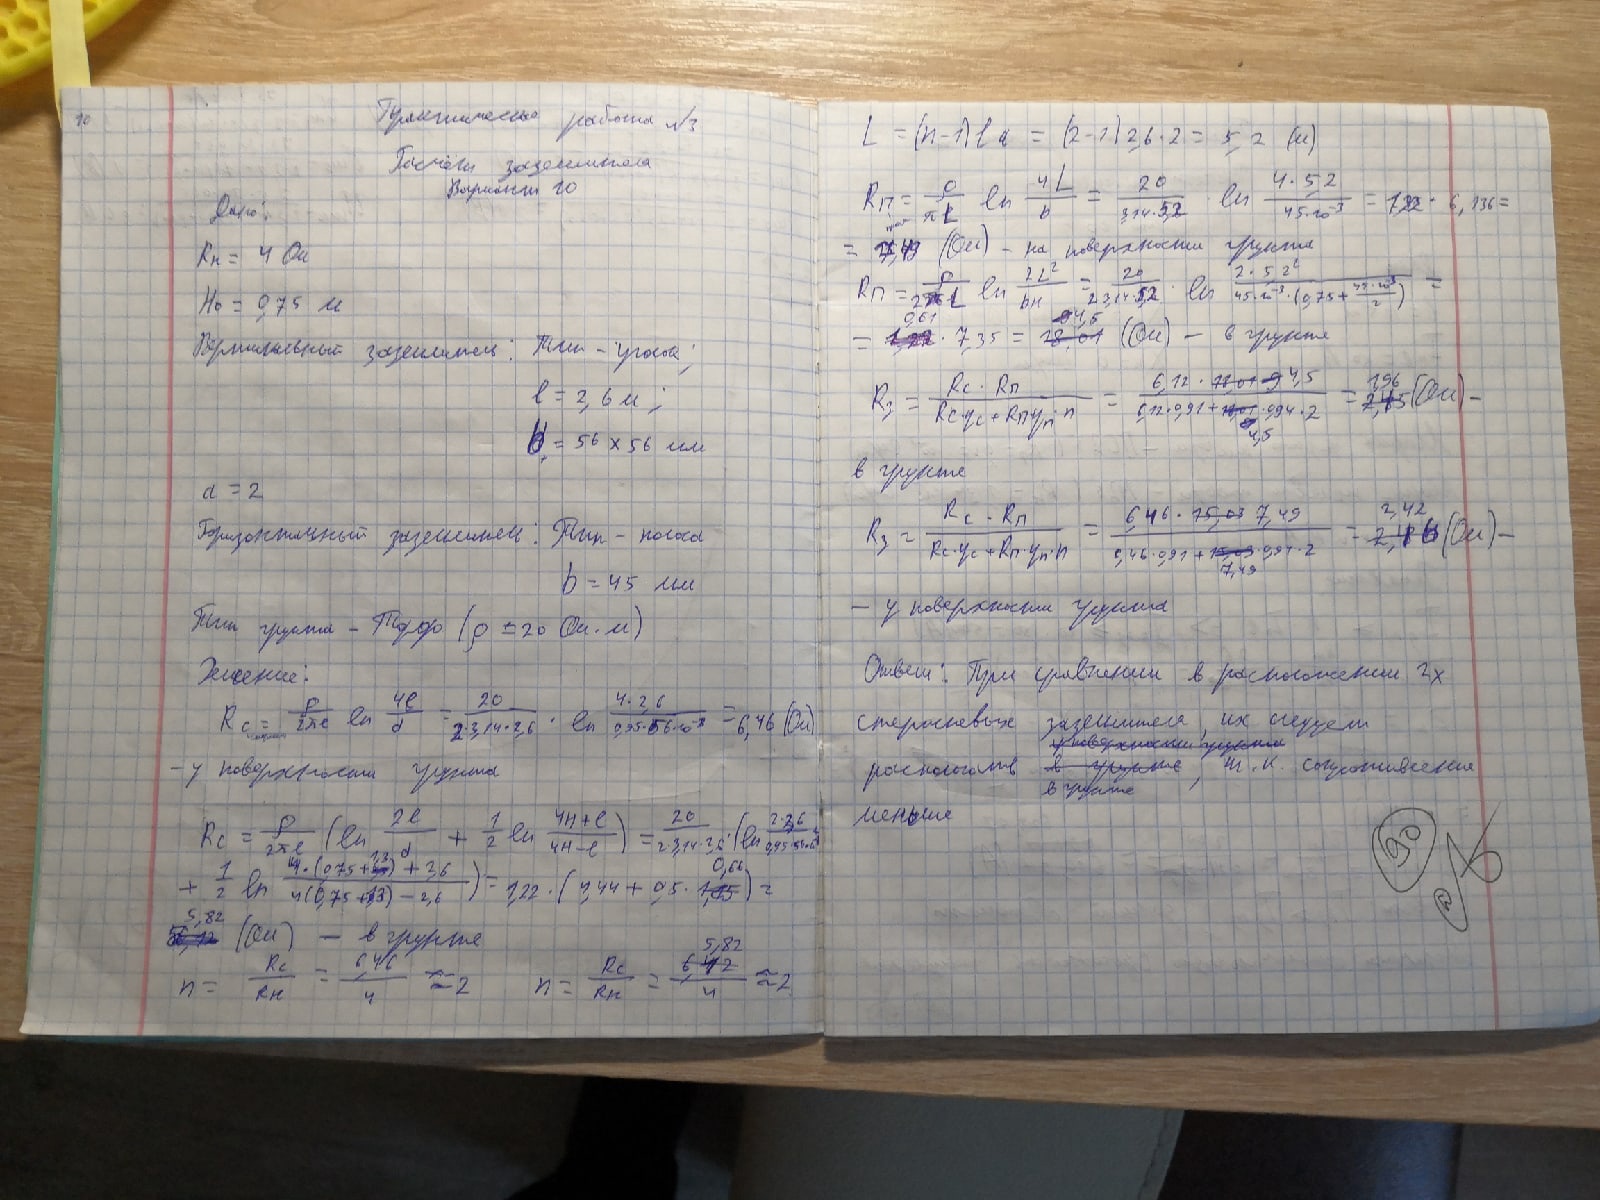 10
Практическая работа №3
Расчёт заземлителя
Вариант 10
Дано:
Rн = 4 Ом
H₀ = 0,75 м
Вертикальный заземлитель: Тип – уголок;
l = 2,6 м;
b = 56 x 56 мм
a = 2
Горизонтальный заземлитель: Тип – полоса
b = 45 мм
Тип грунта – Торф (ρ = 20 Ом·м)
Решение:
Rс = ρ/2πl ln 4l/d = 20/2·3,14·2,6 · ln 4·2,6/0,95·56·10⁻³ = 6,46 (Ом)
– у поверхности грунта
Rс = ρ/2πl (ln 2l/d + 1/2 ln 4H+l/4H−l) = 20/2·3,14·2,6 · (ln 2·2,6/0,95·56·10⁻³
+ 1/2 ln 4·(0,75+1,3)+2,6/4(0,75+1,3)−2,6) = 1,22 · (4,44 + 0,5 · 0,66) =
5,82 (Ом) – в грунте
n = Rс/Rн = 6,46/4 ≈ 2 n = Rс/Rн = 5,82/4 ≈ 2
L = (n−1) l a = (2−1) 2,6·2 = 5,2 (м)
Rп = ρ/πL ln 4L/b = 20/3,14·5,2 · ln 4·5,2/45·10⁻³ = 1,22 · 6,136 =
= 7,49 (Ом) – на поверхности грунта
Rп = ρ/2πL ln 2L²/bH = 20/2·3,14·5,2 · ln 2·5,2²/45·10⁻³·(0,75+45·10⁻³/2) =
= 0,61 · 7,35 = 4,5 (Ом) – в грунте
Rз = Rс·Rп/Rс·ηс+Rп·ηп·n = 6,12 · 4,5/6,12·0,91+4,5·0,94·2 = 1,96 (Ом) –
в грунте
Rз = Rс·Rп/Rс·ηс+Rп·ηп·n = 6,46 · 7,49/6,46·0,91+7,49·0,91·2 = 2,42 (Ом) –
– у поверхности грунта
Ответ: При сравнении в расположении 2х
стержневых заземлителя, их следует
распологать в грунте, т.к. сопротивление
меньше
90